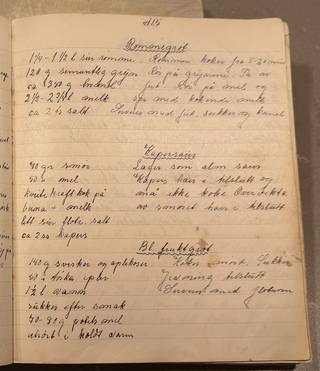 Rømmegrøt
1¼ - 1½ l sur rømme. Rømmen koker fra 5-20 min
120 g semulegryn Rør på grynene. Ta av
ca 340 g hvetemel fett. Rør på mel og
2½ - 2¾ l melk spe med kokende melk
ca 2 ts salt. Serveres med fett, sukker og kanel
Kapersaus
40 gr smør Lages som alm saus
40 " mel Kapers has i tilslutt og
kraft kok på må ikke koke
+ melk av smøret has i tilslutt
litt sur fløte, salt
ca 2 ss kapers
Bl. fruktgrøt
140 g svisker og aprikoser. Kokes med. Sukker
40 " tørka eper Jevning tilslutt
1½ l vann Serveres med fløtem
sukker efter smak
70-90 g potetmel
utrørt i koldt vann